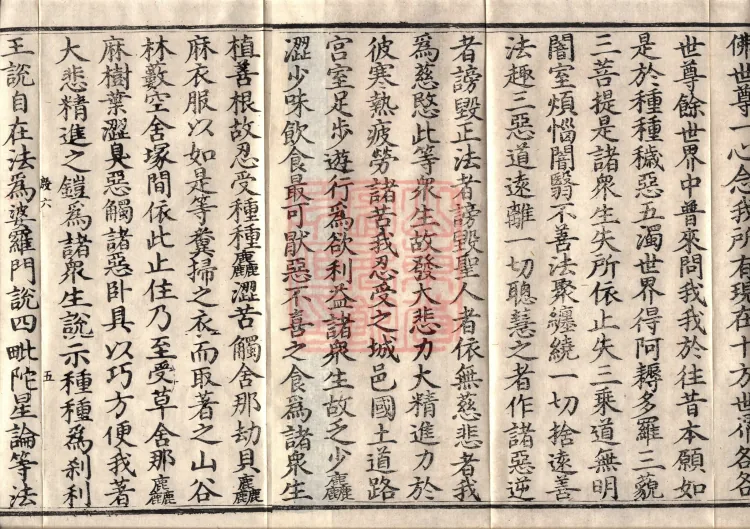 佛世尊一心念我所有現在十方世界各各
世尊餘世界中普來問我我於往昔本願如
是於種種穢惡五濁世界得阿耨多羅三藐
三菩提是諸眾生失所依止失三乘道無明
闇室煩惱闇翳不善法聚纏繞一切捨遠善
法趣三惡道遠離一切聰慧之者作諸惡逆
者謗毀正法者謗毀聖人者依無慈悲者我
為慈愍此等眾生故發大悲力大精進力於
彼寒熱疲勞諸苦我忍受之城邑國土道路
宮室足步遊行為欲利益諸眾生故乏少麤
澀少味飲食最可猒惡不喜之食為諸眾生
植善根故忍受種種麤澀苦觸舍那劫貝麤
麻衣服以如是等糞掃之衣而取著之山谷
林藪空舍塚間依此止住乃至受草舍那麤
麻樹葉澀臭惡觸諸惡卧具以巧方便我著
大悲精進之鎧為諸眾生說示種種為剎利
殷六
五
王說自在法為婆羅門說四毗陀星論等法